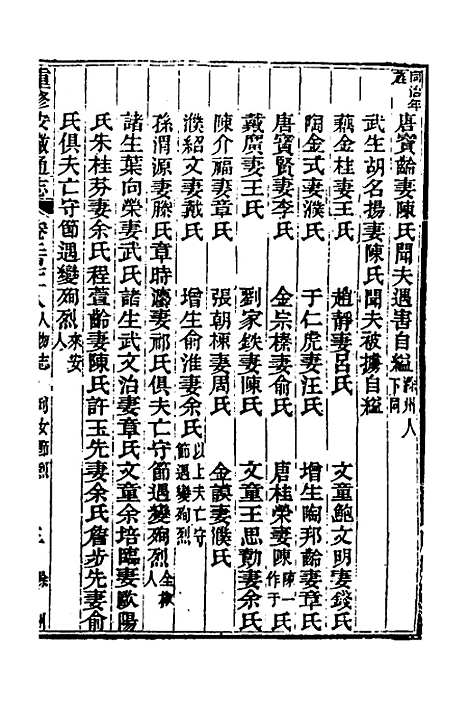 同治年
唐寶齡妻陳氏聞夫遇害自縊滁州人下同
武生胡名揚妻陳氏聞夫被擄自縊
藕金桂妻王氏 趙靜妻呂氏 文童鮑文明妻錢氏
陶金式妻濮氏 于仁虎妻汪氏 增生陶邦齡妻章氏
唐寶賢妻李氏 金宗榛妻俞氏 唐桂榮妻陳陳一作于氏
戴廣妻王氏 劉家鉄妻陳氏 文童王思勤妻余氏
陳介福妻章氏 張朝棟妻周氏 金謨妻濮氏
濮紹文妻戴氏 增生俞淮妻余氏以上夫亡守節遇變殉烈
孫渭源妻滕氏章時 妻祁氏俱夫亡守節遇變殉烈全椒人
諸生葉向榮妻武氏諸生武文治妻章氏文童余培臨妻歐陽
氏朱桂芬妻余氏程萱齡妻陳氏許玉先妻余氏詹步先妻俞
氏俱夫亡守節遇變殉烈來安人
重修安徽通志 卷 人物志 列女節烈 三